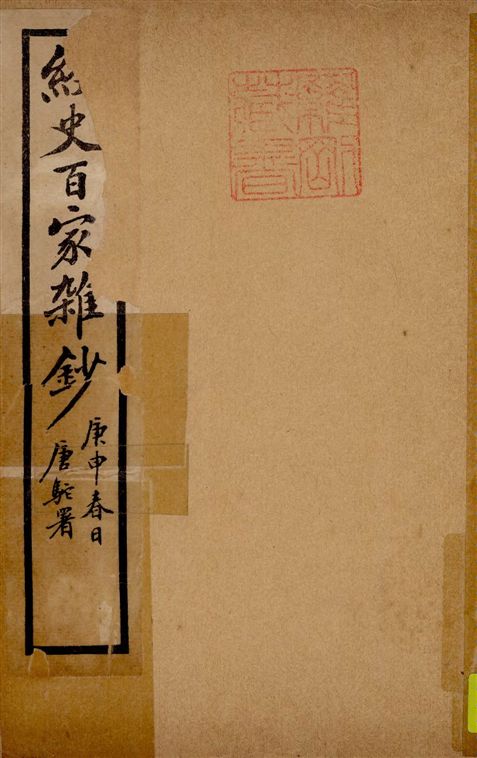 經史百家雜鈔
庚申春日
唐駝署
藏書